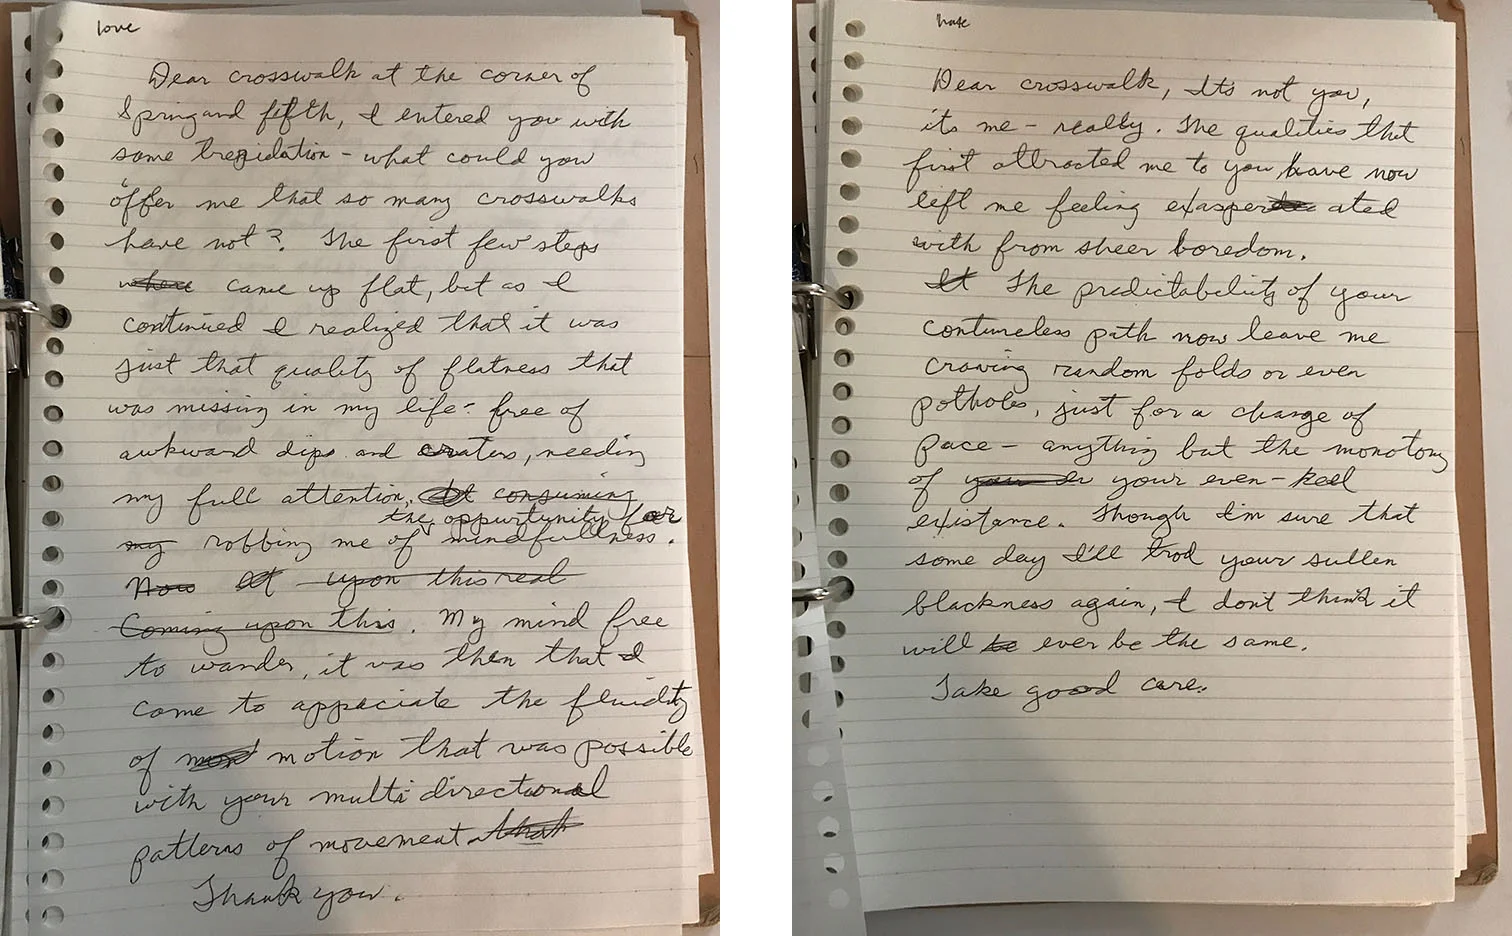 love
Dear crosswalk at the corner of
Spring and fifth, I entered you with
some trepidation - what could you
offer me that so many crosswalks
have not? The first few steps
when came up flat, but as I
continued I realized that it was
just that quality of flatness that
was missing in my life - free of
awkward dips and craters, needing
my full attention. It consuming
the oppurtunity for
my robbing me of mindfullness.
Now It upon this real
Coming upon this. My mind free
to wander, it was then that I
come to appaciate the fluidity
of motion that was possible
with your multi directional
patterns of movement that
Thank you.
hate
Dear crosswalk, It's not you,
its me - really. The qualities that
first attracted me to you have now
left me feeling exasper ated
with from sheer boredom.
It The predictability of your
contureless path now leave me
craving random folds or even
potholes, just for a change of
pace - anything but the monotony
of your even-keel
existance. Though I'm sure that
some day I'll trod your sullen
blackness again, I don't think it
will be ever be the same.
Take good care.